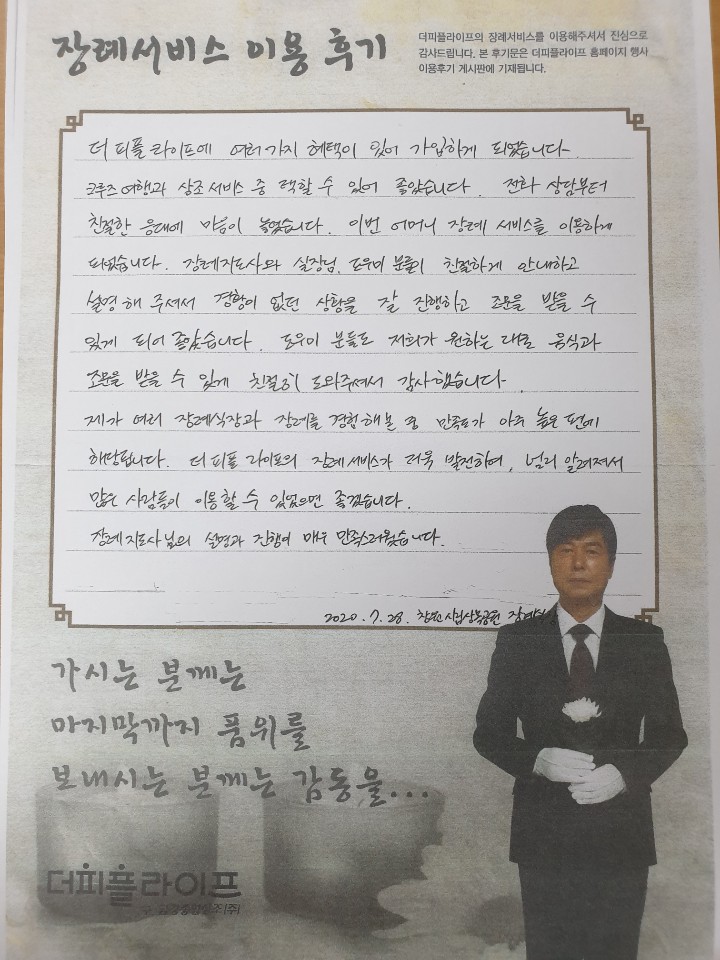 장례서비스 이용 후기
더피플라이프의 장례서비스를 이용해주셔서 진심으로
감사드립니다. 본 후기문은 더피플라이프 홈페이지 행사
이용후기 게시판에 기재됩니다.
더 피플 라이프에 여러가지 혜택이 있어 가입하게 되었습니다.
크루즈 여행과 상조 서비스 중 택할 수 있어 좋았습니다. 전화 상담부터
친절한 응대에 마음이 놓였습니다. 이번 어머니 장례 서비스를 이용하게
되었습니다. 장례지도사와 실장님, 도우미 분들이 친절하게 안내하고
설명해 주셔서 경황이 없던 상황을 잘 진행하고 조문을 받을 수
있게 되어 좋았습니다. 도우미 분들도 저희가 원하는 대로 음식과
조문을 받을 수 있게 친절히 도와주셔서 감사했습니다.
제가 여러 장례식장과 장례를 경험해 본 중 만족도가 아주 높은 편에
해당됩니다. 더 피플 라이프의 장례 서비스가 더욱 발전하여, 널리 알려져서
많은 사람들이 이용할 수 있었으면 좋겠습니다.
장례지도사님의 설명과 진행이 매우 만족스러웠습니다.
2020. 7. 28. 창원시립상복공원
가시는 분께는
마지막까지 품위를
보내시는 분께는 감동을...
더피플라이프